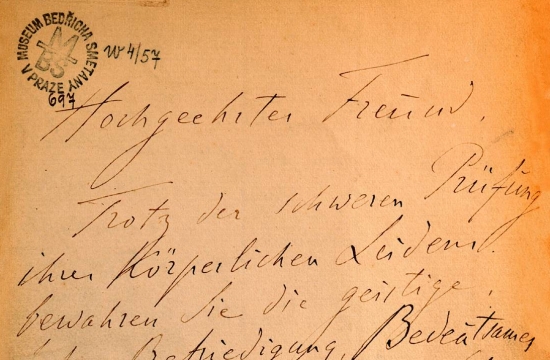 MUSEUM BEDŘICHA SMETANY V PRAZE
MBS
W 4/57
697
Hochgeehrter Freund,
Trotz der schweren Prüfung
ihrer Körperlichen Leidens
bewahren Sie die geistige,
Befriedigung, Bedeutsames